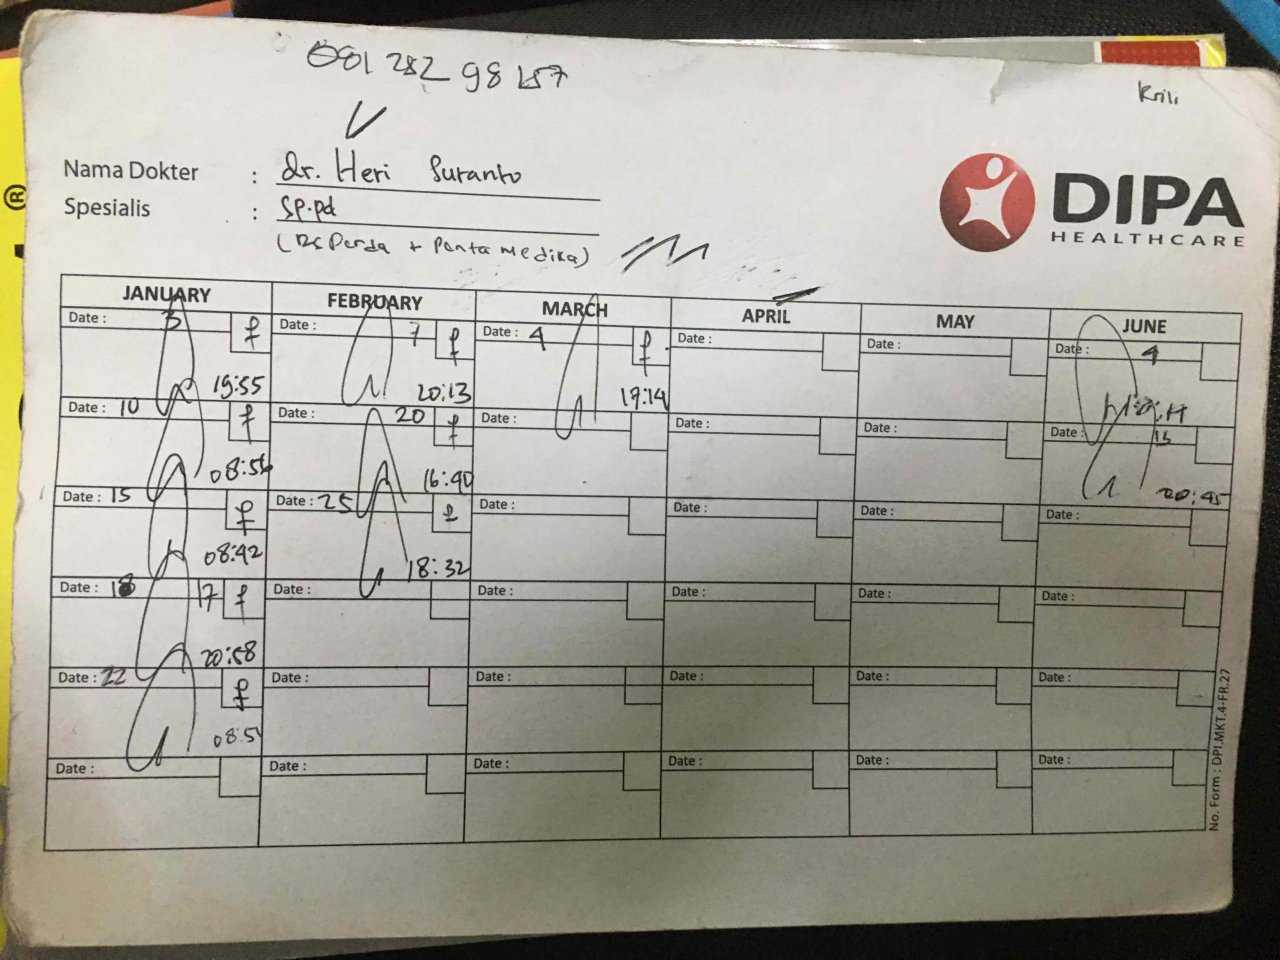 081 282 98 157
Krili
Nama Dokter : dr. Heri Suranto
Spesialis : Sp.pd
(RS Perda + Penta Medika)
DIPA
HEALTHCARE
JANUARY FEBRUARY MARCH APRIL MAY JUNE
Date : 3 f Date : 7 f Date : 4 f Date : Date : Date : 4
19:55 20:13 17:14
Date : 10 f Date : 20 f Date : Date : Date : Date : 13
08:56 16:40 20:45
Date : 15 f Date : 25 f Date : Date : Date : Date :
08:42 18:32
Date : 18 17 f Date : Date : Date : Date : Date :
20:58
Date : 22 f Date : Date : Date : Date : Date :
08:51
Date : Date : Date : Date : Date : Date :
No. Form : DPI.MKT.4-FR.27
®